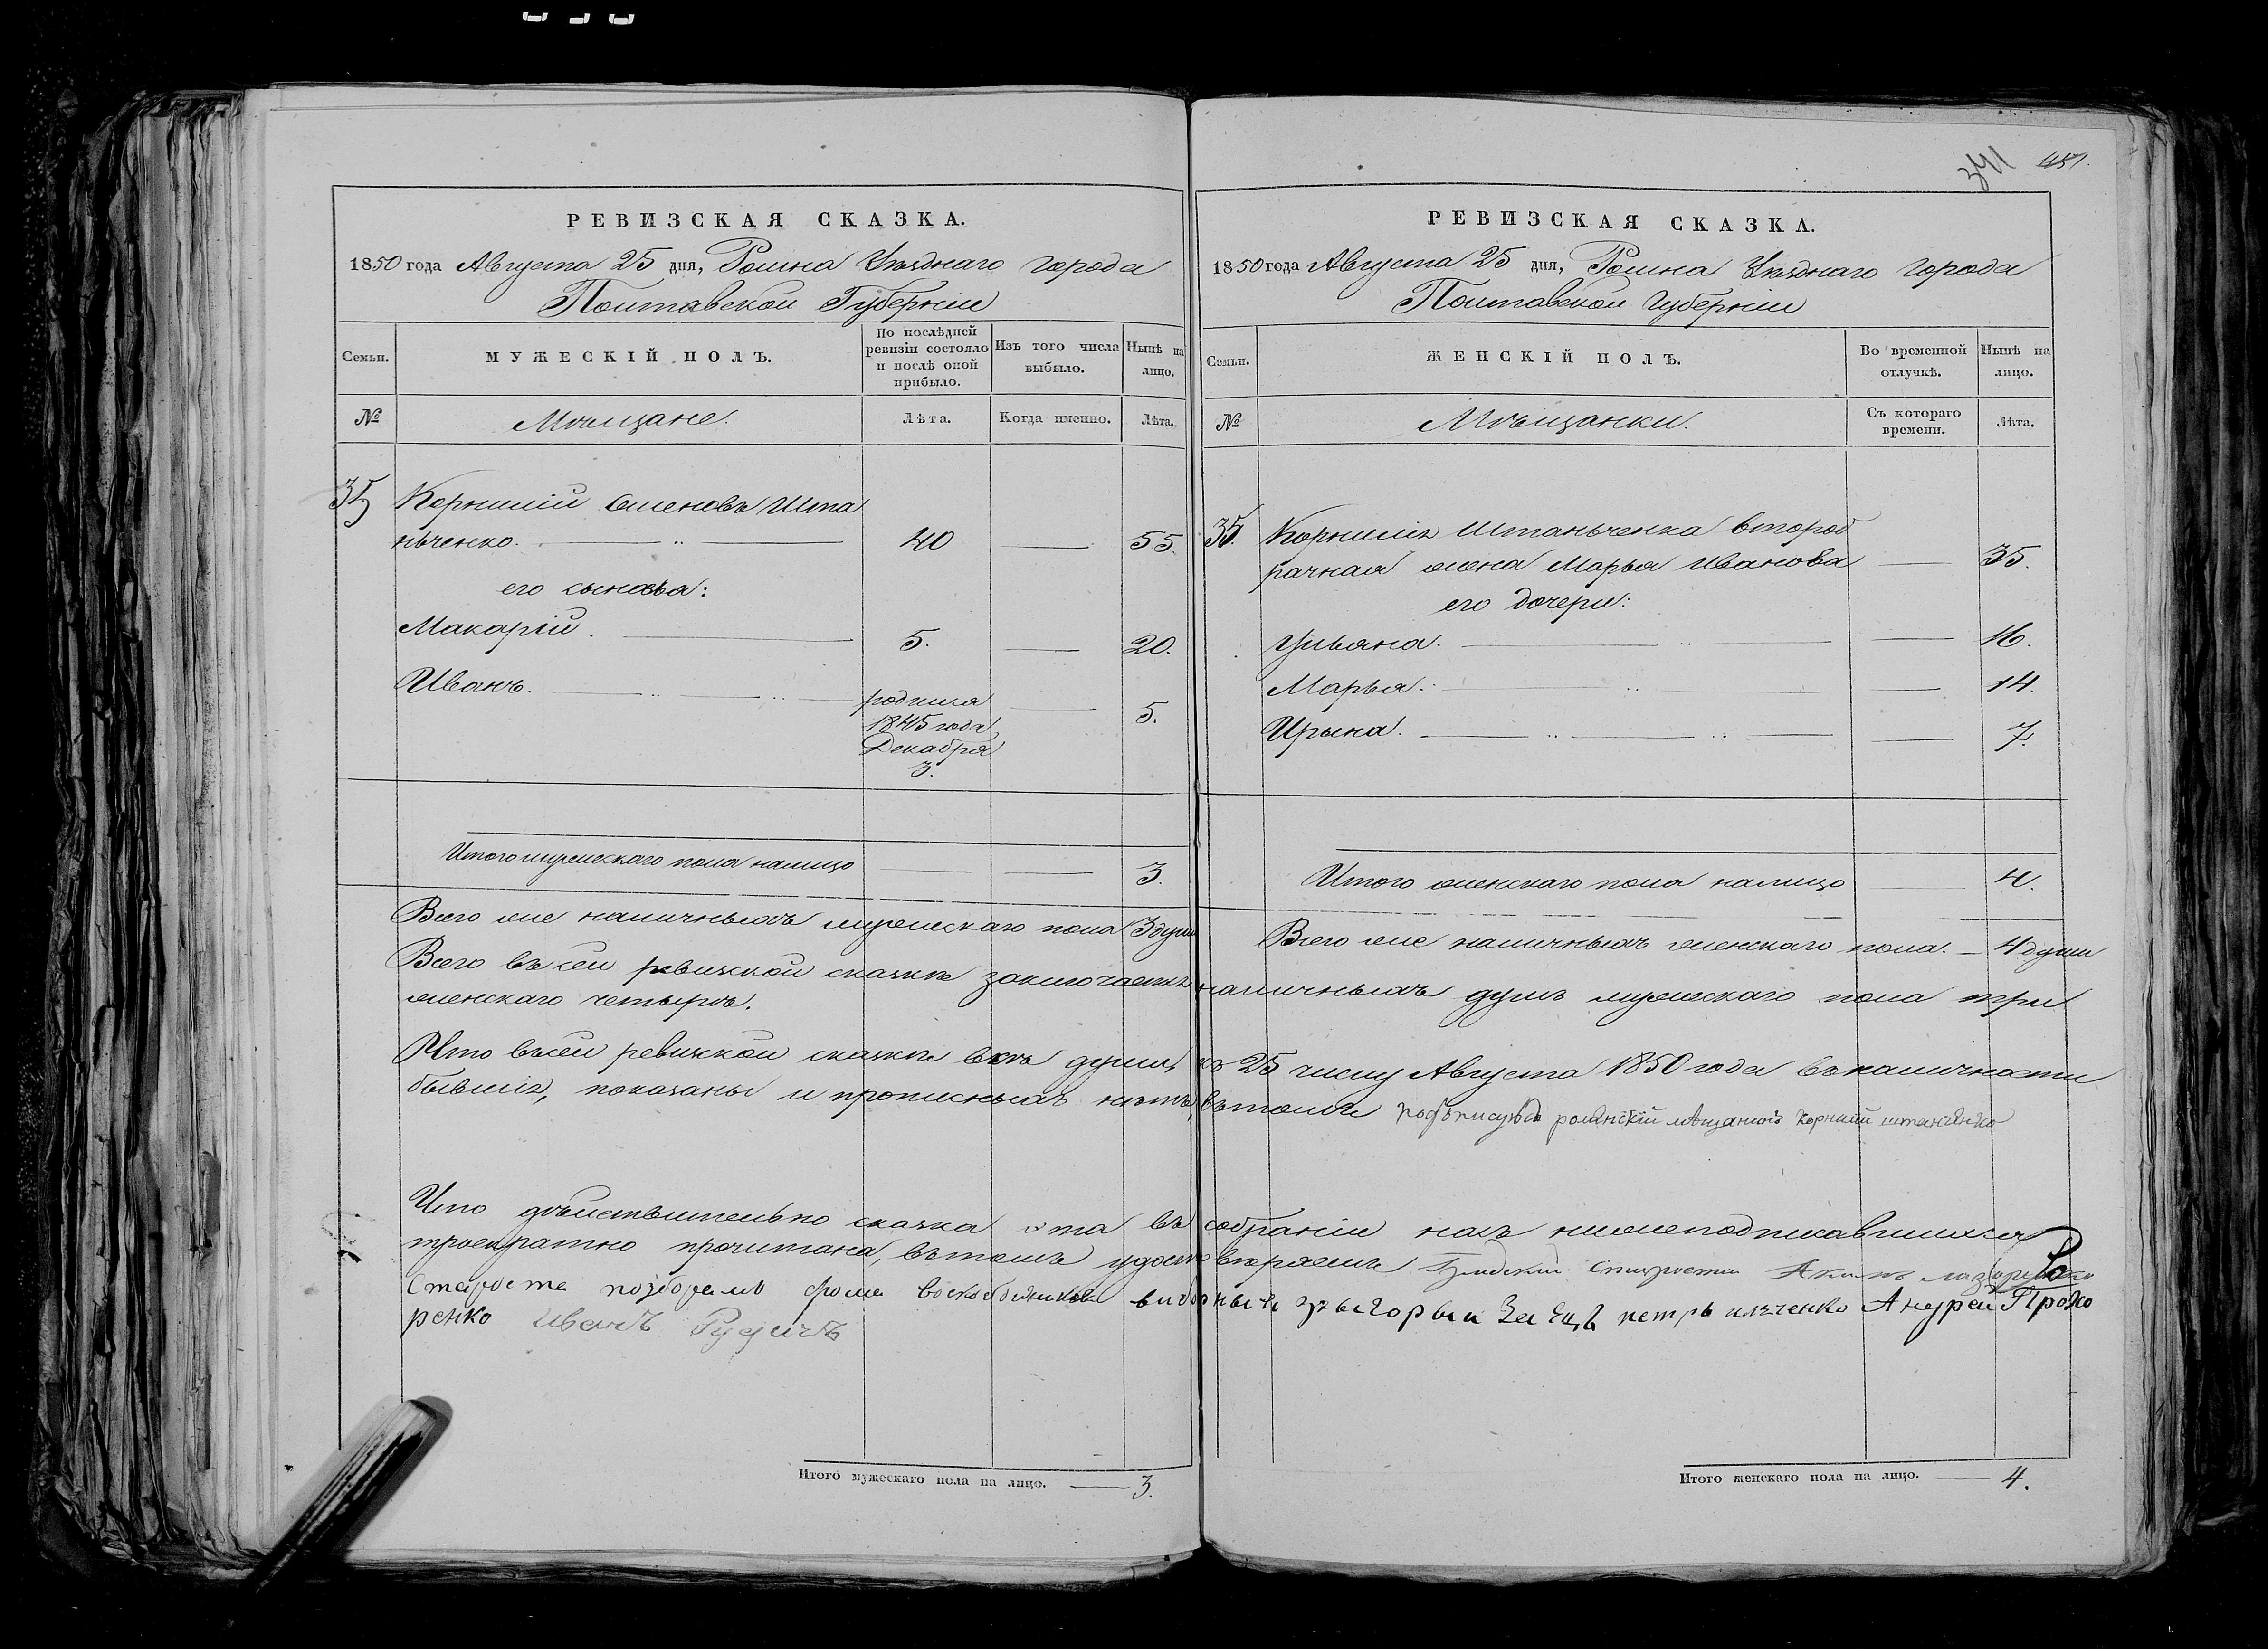 341 451.
РЕВИЗСКАЯ СКАЗКА.
1850 года Августа 25 дня, Ромна Уѣзднаго города
Полтавской Губерніи
Семьи.
МУЖЕСКІЙ ПОЛЪ.
По послѣдней ревизіи состояло и послѣ оной прибыло.
Изъ того числа выбыло.
Нынѣ на лицо.
№
Мѣщане.
Лѣта.
Когда именно.
Лѣта.
35 Корнилій Семеновъ Шта
ньченко. 40 55.
его сыновья:
Макарій. 5. 20.
Иванъ. родился 5.
1845 года
Декабря
3.
Итого мужескаго пола налицо 3.
Всего же наличныхъ мужескаго пола 3 души
РЕВИЗСКАЯ СКАЗКА.
1850 года Августа 25 дня, Ромна Уѣзднаго города
Полтавской Губерніи
Семьи.
ЖЕНСКІЙ ПОЛЪ.
Во временной отлучкѣ.
Нынѣ на лицо.
№
Мѣщанки.
Съ котораго времени.
Лѣта.
35. Корнилія Штаньченка второб
рачная жена Марья Иванова 35.
его дочери:
Ульяна. 16.
Марья. 14.
Ирына. 7.
Итого женскаго пола налицо 4.
Всего же наличныхъ женскаго пола. 4 души
Всего въ сей ревизской сказкѣ заключается наличныхъ душъ мужескаго пола три
женскаго четыре.
Что въ сей ревизской сказкѣ всѣ души, къ 25 числу Августа 1850 года въ наличности
бывшія, показаны и прописныхъ нѣтъ, въ томъ подъписуюсь роменскій мѣщанинъ Корнилій штанченко
Что дѣйствительно сказка эта въ собраніи насъ нижеподписавшихся
троекратно прочитана, въ томъ удостовѣряемъ Градскій Староста Акимъ
Староста фома воскобойниковъ выборные григорый Заецъ петръ илченко Андрей Прохо
ренко Иванъ
Итого мужескаго пола на лицо. 3.
Итого женскаго пола на лицо. 4.